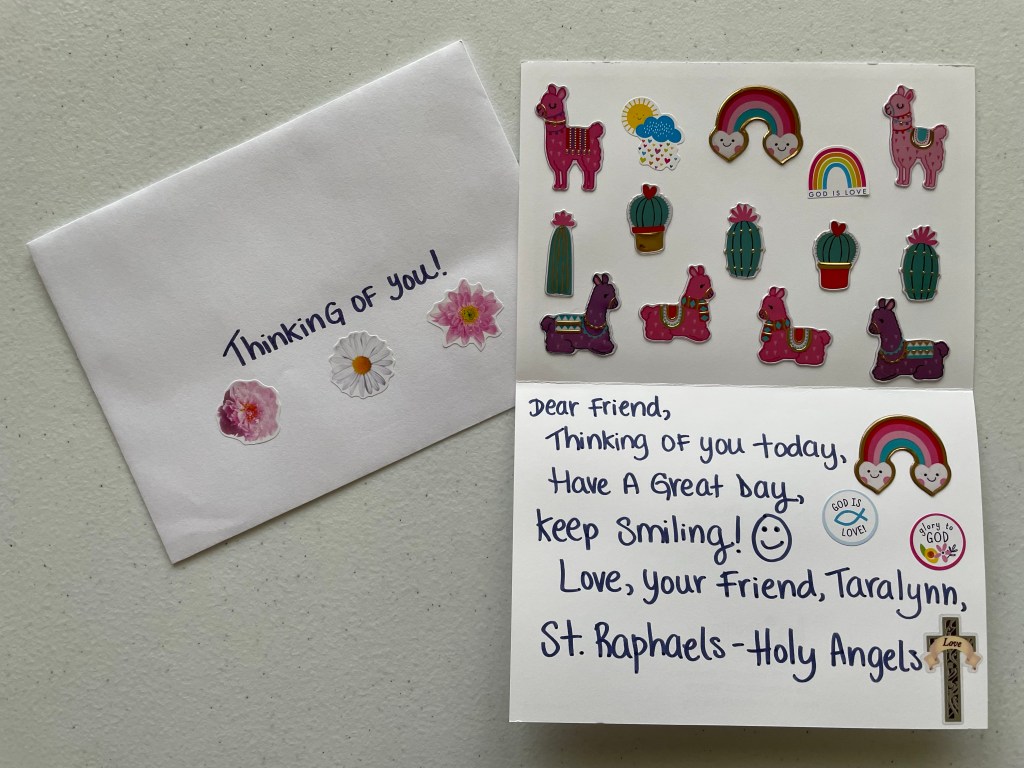 Thinking of you!
GOD IS LOVE
Dear Friend,
Thinking of you today,
Have A Great Day,
Keep Smiling!
GOD IS
LOVE!
glory to
GOD
Love, your Friend, Taralynn,
St. Raphaels - Holy Angels
Love